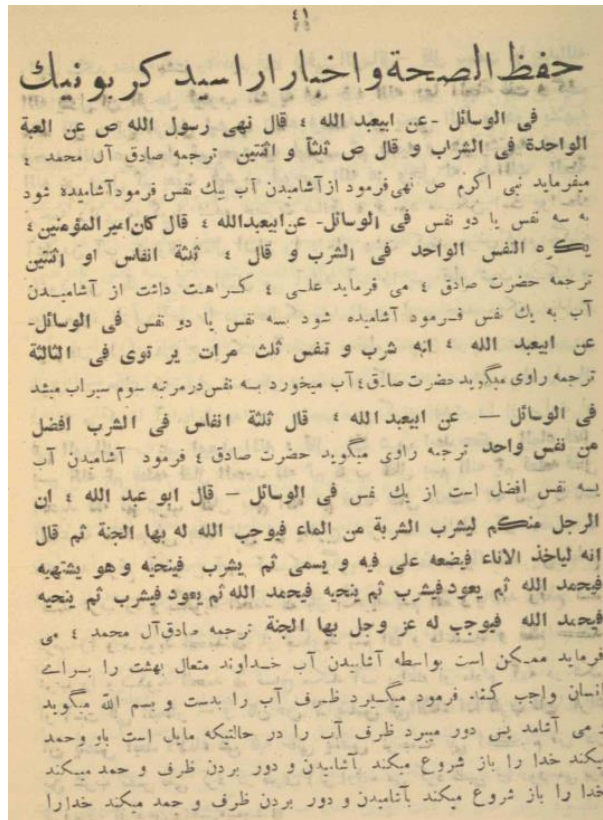 ٤١
حفظ الصحة و اخبار ار اسید کربونیك
فی الوسائل -عن ابیعبد الله ٤ قال نهی رسول الله ص عن العبة
الواحدة فی الشراب و قال ص ثلثآ و اثنتین ترجمه صادق آل محمد ٤
میفرماید نبی اکرم ص نهی فرمود از آشامیدن آب بیك نفس فرمود آشامیده شود
به سه نفس یا دو نفس فی الوسائل- عن ابیعبدالله ٤ قال کان امیر المؤمنین ٤
یکره النفس الواحد فی الشرب و قال ٤ ثلثة انفاس او اثنتین
ترجمه حضرت صادق ٤ می فرماید علی ٤ کراهت داشت از آشامیدن
آب به یك نفس فرمود آشامیده شود بسه نفس یا دو نفس فی الوسائل-
عن ابیعبد الله ٤ انه شرب و تنفس ثلث مرات یر توی فی الثالثة
ترجمه راوی میگوید حضرت صادق ٤ آب میخورد بسه نفس در مرتبه سوم سیراب میشد
فی الوسائل — عن ابیعبد الله ٤ قال ثلثة انفاس فی الشرب افضل
من نفس واحد ترجمه راوی میگوید حضرت صادق ٤ فرمود آشامیدن آب
بسه نفس افضل است از یك نفس فی الوسائل – قال ابو عبد الله ٤ ان
الرجل منکم لیشرب الشربة من الماء فیوجب الله له بها الجنة ثم قال
انه لیاخذ الاناء فیضعه علی فیه و یسمی ثم یشرب فینحیه و هو یشتهیه
فیحمد الله ثم یعود فیشرب ثم ینحیه فیحمد الله ثم یعود فیشرب ثم ینحیه
فیحمد الله فیوجب له عز وجل بها الجنة ترجمه صادق آل محمد ٤ می
فرماید ممکن است بواسطه آشامیدن آب خداوند متعال بهشت را برای
انسان واجب کند. فرمود میگیرد ظرف آب را بدست و بسم الله میگوید
و می آشامد پس دور میبرد ظرف آب را در حالتیکه مایل است باو وحمد
میکند خدا را باز شروع میکند بآشامیدن و دور بردن ظرف و حمد میکند
خدا را باز شروع میکند بآشامیدن و دور بردن ظرف و حمد میکند خدارا